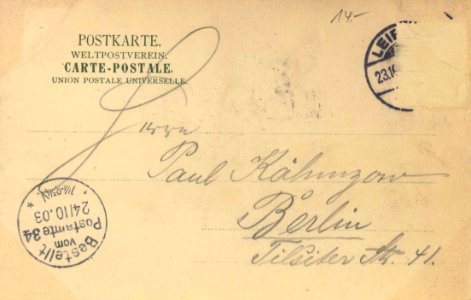 14.-
POSTKARTE.
WELTPOSTVEREIN.
CARTE-POSTALE.
UNION POSTALE UNIVERSELLE.
LEIP
23.10
Herrn
Paul
Berlin
Tilsiter Str. 41.
Bestellt
vom
Postamte 34
24/10.03